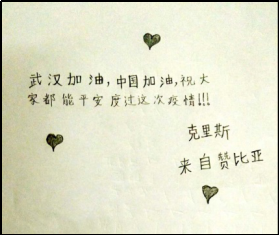 武汉加油,中国加油,祝大
家都能平安度过这次疫情!!!
克里斯
来自赞比亚